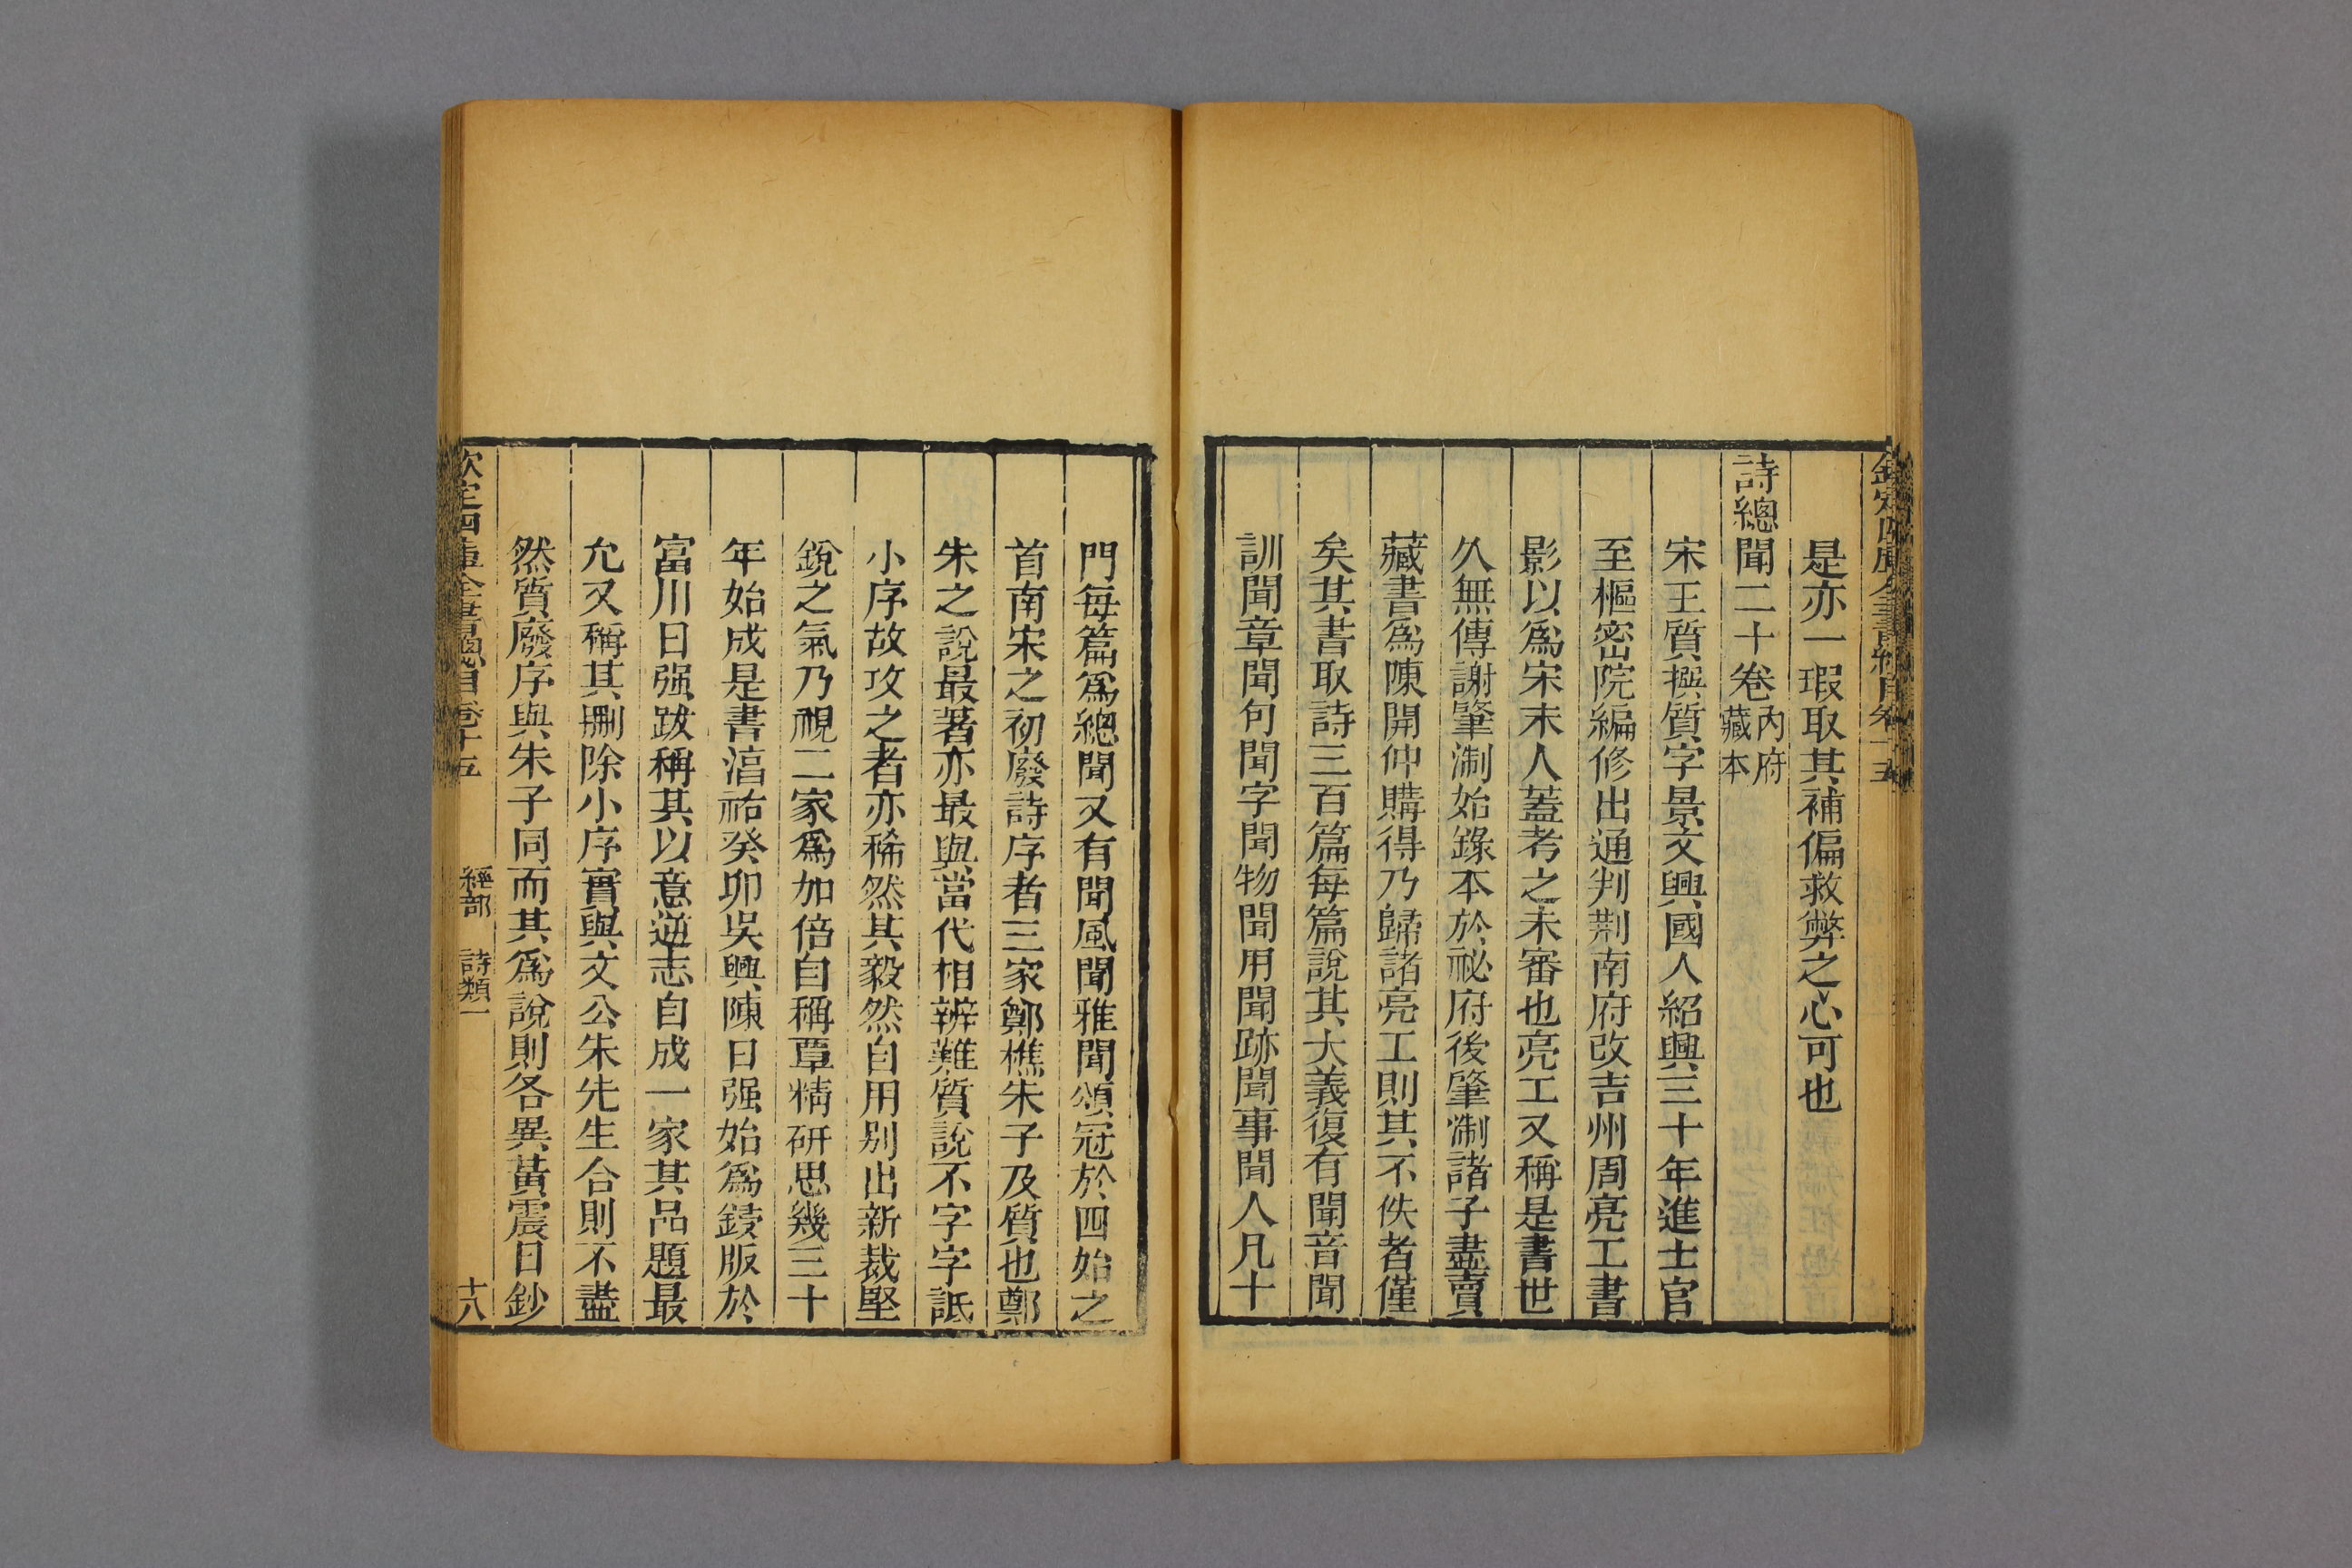 欽定四庫全書總目卷十五
是亦一瑕取其補偏救弊之心可也
詩總聞二十卷內府藏本
宋王質撰質字景文興國人紹興三十年進士官
至樞密院編修出通判荆南府改吉州周亮工書
影以為宋末人蓋考之未審也亮工又稱是書世
久無傳謝肇淛始錄本於祕府後肇淛諸子盡賣
藏書爲陳開仲購得乃歸諸亮工則其不佚者僅
矣其書取詩三百篇每篇說其大義復有聞音聞
訓聞章聞句聞字聞物聞用聞跡聞事聞人凡十
門每篇爲總聞又有聞風聞雅聞頌冠於四始之
首南宋之初廢詩序者三家鄭樵朱子及質也鄭
朱之說最著亦最與當代相辨難質說不字字詆
小序故攻之者亦稀然其毅然自用别出新裁堅
銳之氣乃視二家爲加倍自稱覃精研思幾三十
年始成是書淳祐癸卯吳興陳日强始爲鋟版於
富川日强跋稱其以意逆志自成一家其品題最
允又稱其删除小序實與文公朱先生合則不盡
然質廢序與朱子同而其爲說則各異黃震日鈔
欽定四庫全書總目卷十五 經部 詩類一 十八